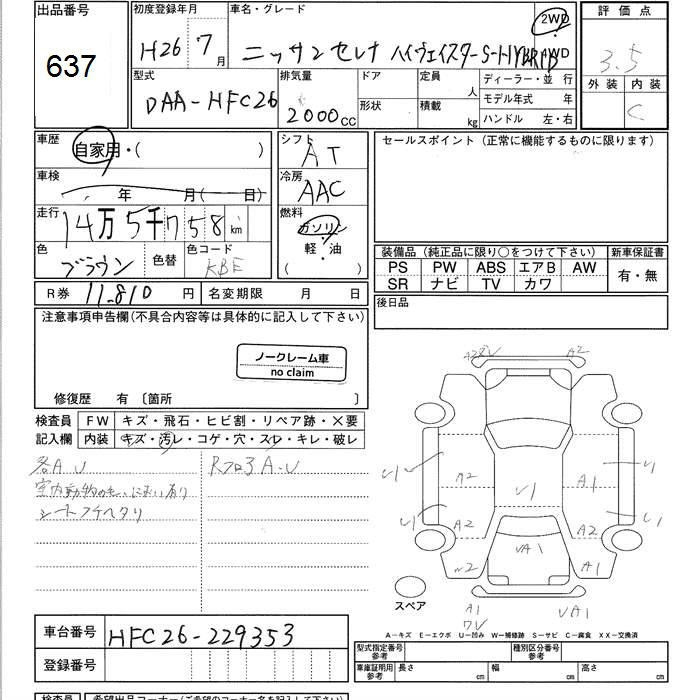 出品番号
637
初度登録年月
H26 7月
車名・グレード
ニッサン セレナ ハイウェイスターS-HYBRID
2WD
4WD
評価点
3.5
外装 内装
C
型式
DAA-HFC26
排気量
2000cc
ドア
形状
定員
人
積載
kg
ディーラー・並 行
モデル年式 年
ハンドル 左・右
車歴
自家用・( )
車検
年 月( 日)
走行
14万5千758km
色
ブラウン
色替
色コード
KBE
シフト
AT
冷房
AAC
燃料
ガソリン
軽・油
( )
セールスポイント(正常に機能するものに限ります)
装備品(純正品に限り○をつけて下さい)
新車保証書
PS PW ABS エアB AW
SR ナビ TV カワ
有・無
後日品
R券 11,810円
名変期限 月 日
注意事項申告欄(不具合内容等は具体的に記入して下さい)
ノークレーム車
no claim
修復歴 有〔箇所 〕
検査員
記入欄
FW キズ・飛石・ヒビ割・リペア跡・×要
内装 キズ・汚レ・コゲ・穴・スレ・キレ・破レ
各A.U
Rフロ3A.U
シートフチヘタリ
A2
U1
U1
A2
A1
U1
U1
U1
A2
A2
VA1
A1
A1
VA1
スペア
A－キズ E－エクボ U－凹み W－補修跡 S－サビ C－腐食 XX－交換済
車台番号
HFC26-229353
登録番号
型式指定番号
参考
種別区分番号
参考
車庫証明用
参考
長さ cm
幅 cm
高さ cm
検査員
希望出品コーナー(ご希望のコーナー名を記入して下さい)